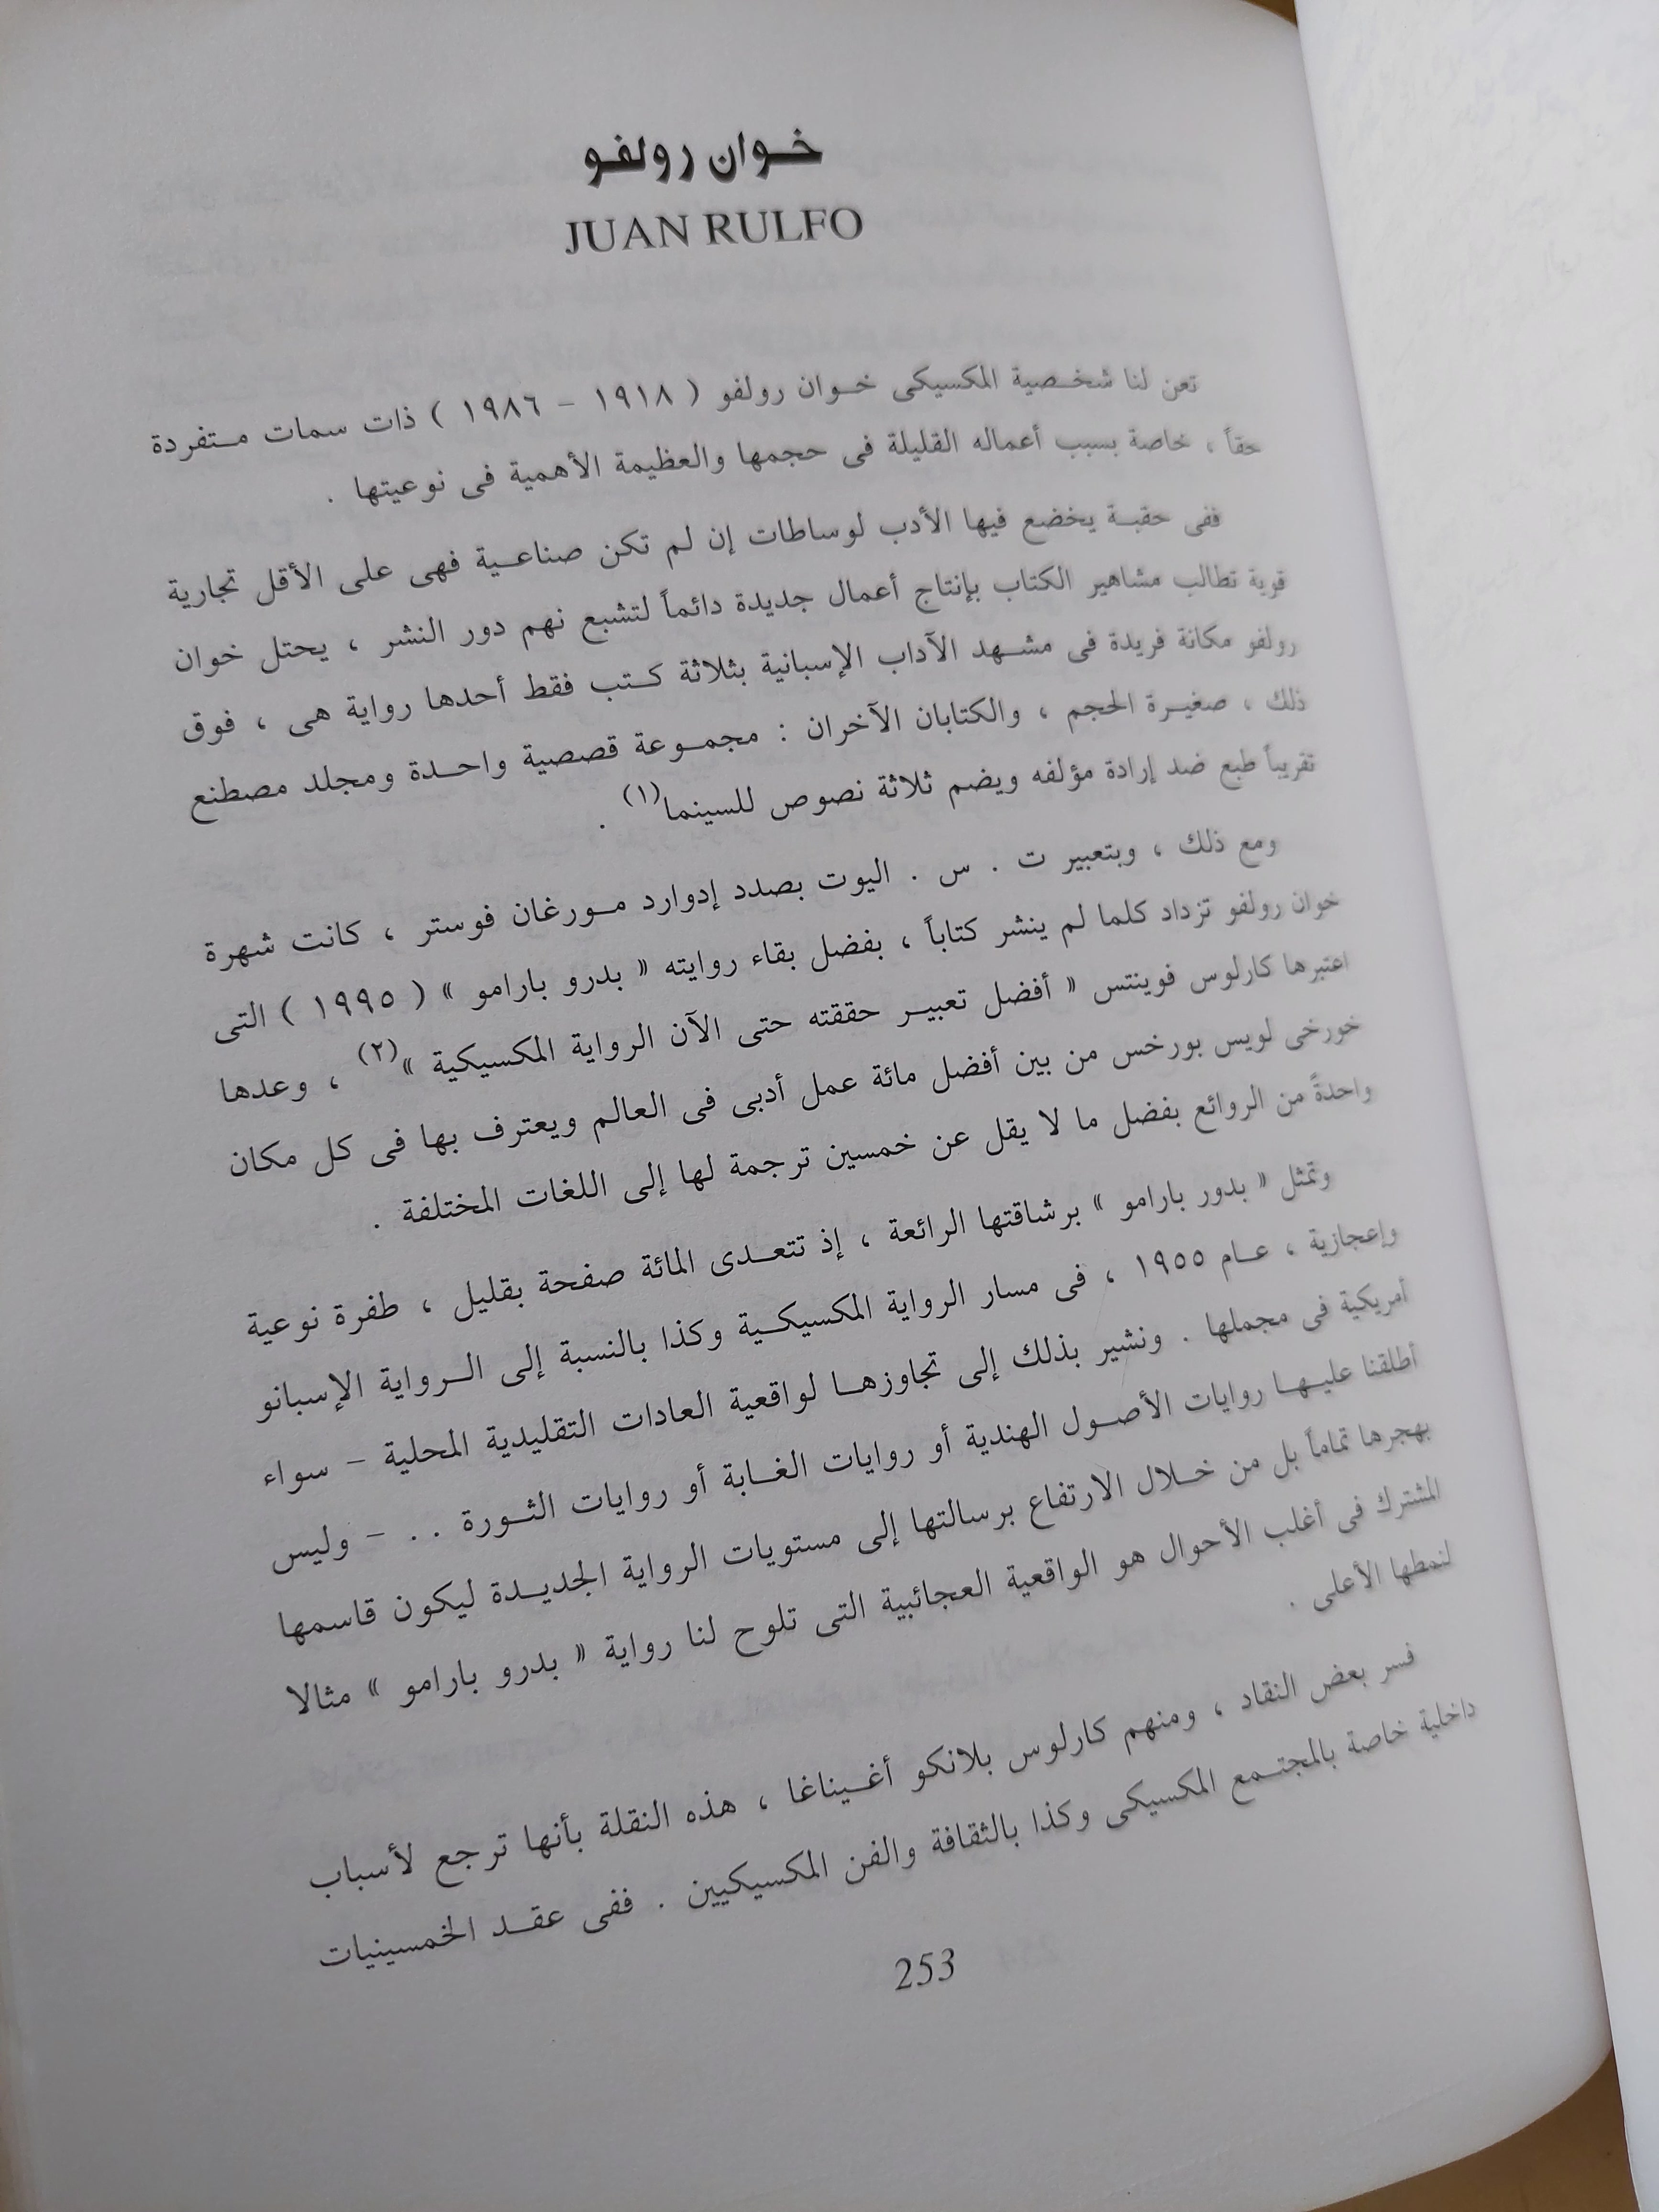 خوان رولفو
JUAN RULFO
تعن لنا شخصية المكسيكى خوان رولفو ( ١٩١٨ - ١٩٨٦ ) ذات سمات متفردة
حقاً ، خاصة بسبب أعماله القليلة فى حجمها والعظيمة الأهمية فى نوعيتها .
ففى حقبة يخضع فيها الأدب لوساطات إن لم تكن صناعية فهى على الأقل تجارية
قوية تطالب مشاهير الكتاب بإنتاج أعمال جديدة دائماً لتشبع نهم دور النشر ، يحتل خوان
رولفو مكانة فريدة فى مشهد الآداب الإسبانية بثلاثة كتب فقط أحدها رواية هى ، فوق
ذلك ، صغيرة الحجم ، والكتابان الآخران : مجموعة قصصية واحدة ومجلد مصطنع
تقريباً طبع ضد إرادة مؤلفه ويضم ثلاثة نصوص للسينما(١) .
ومع ذلك ، وبتعبير ت . س . اليوت بصدد إدوارد مورغان فوستر ، كانت شهرة
خوان رولفو تزداد كلما لم ينشر كتاباً ، بفضل بقاء روايته « بدرو بارامو » ( ١٩٩٥ ) التى
اعتبرها كارلوس فوينتس « أفضل تعبير حققته حتى الآن الرواية المكسيكية »(٢) ، وعدها
خورخى لويس بورخس من بين أفضل مائة عمل أدبى فى العالم ويعترف بها فى كل مكان
واحدةً من الروائع بفضل ما لا يقل عن خمسين ترجمة لها إلى اللغات المختلفة .
وتمثل « بدور بارامو » برشاقتها الرائعة ، إذ تتعدى المائة صفحة بقليل ، طفرة نوعية
وإعجازية ، عام ١٩٥٥ ، فى مسار الرواية المكسيكية وكذا بالنسبة إلى الرواية الإسبانو
أمريكية فى مجملها . ونشير بذلك إلى تجاوزها لواقعية العادات التقليدية المحلية - سواء
أطلقنا عليها روايات الأصول الهندية أو روايات الغابة أو روايات الثورة . . - وليس
بهجرها تماماً بل من خلال الارتفاع برسالتها إلى مستويات الرواية الجديدة ليكون قاسمها
المشترك فى أغلب الأحوال هو الواقعية العجائبية التى تلوح لنا رواية « بدرو بارامو » مثالا
لنمطها الأعلى .
فسر بعض النقاد ، ومنهم كارلوس بلانكو أغيناغا ، هذه النقلة بأنها ترجع لأسباب
داخلية خاصة بالمجتمع المكسيكى وكذا بالثقافة والفن المكسيكيين . ففى عقد الخمسينيات
253